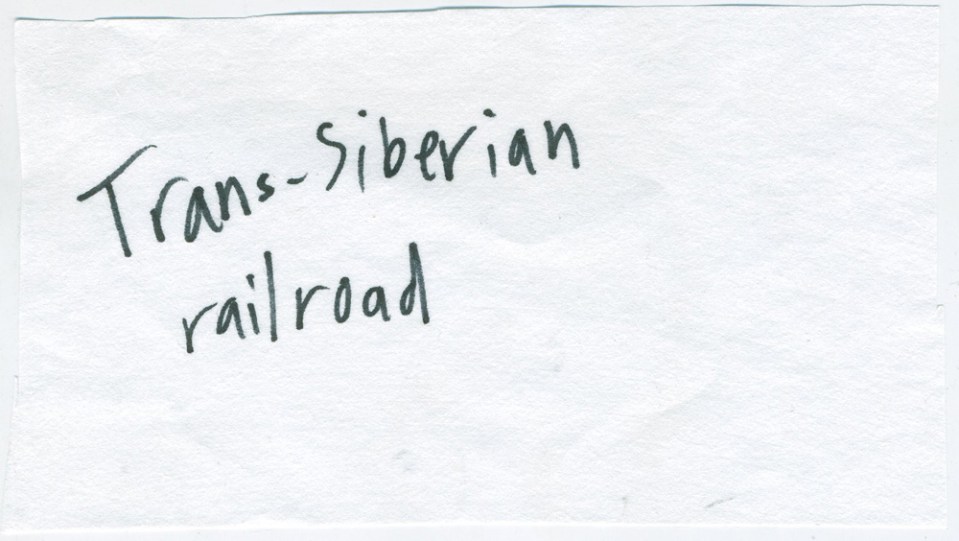 Trans-Siberian
railroad